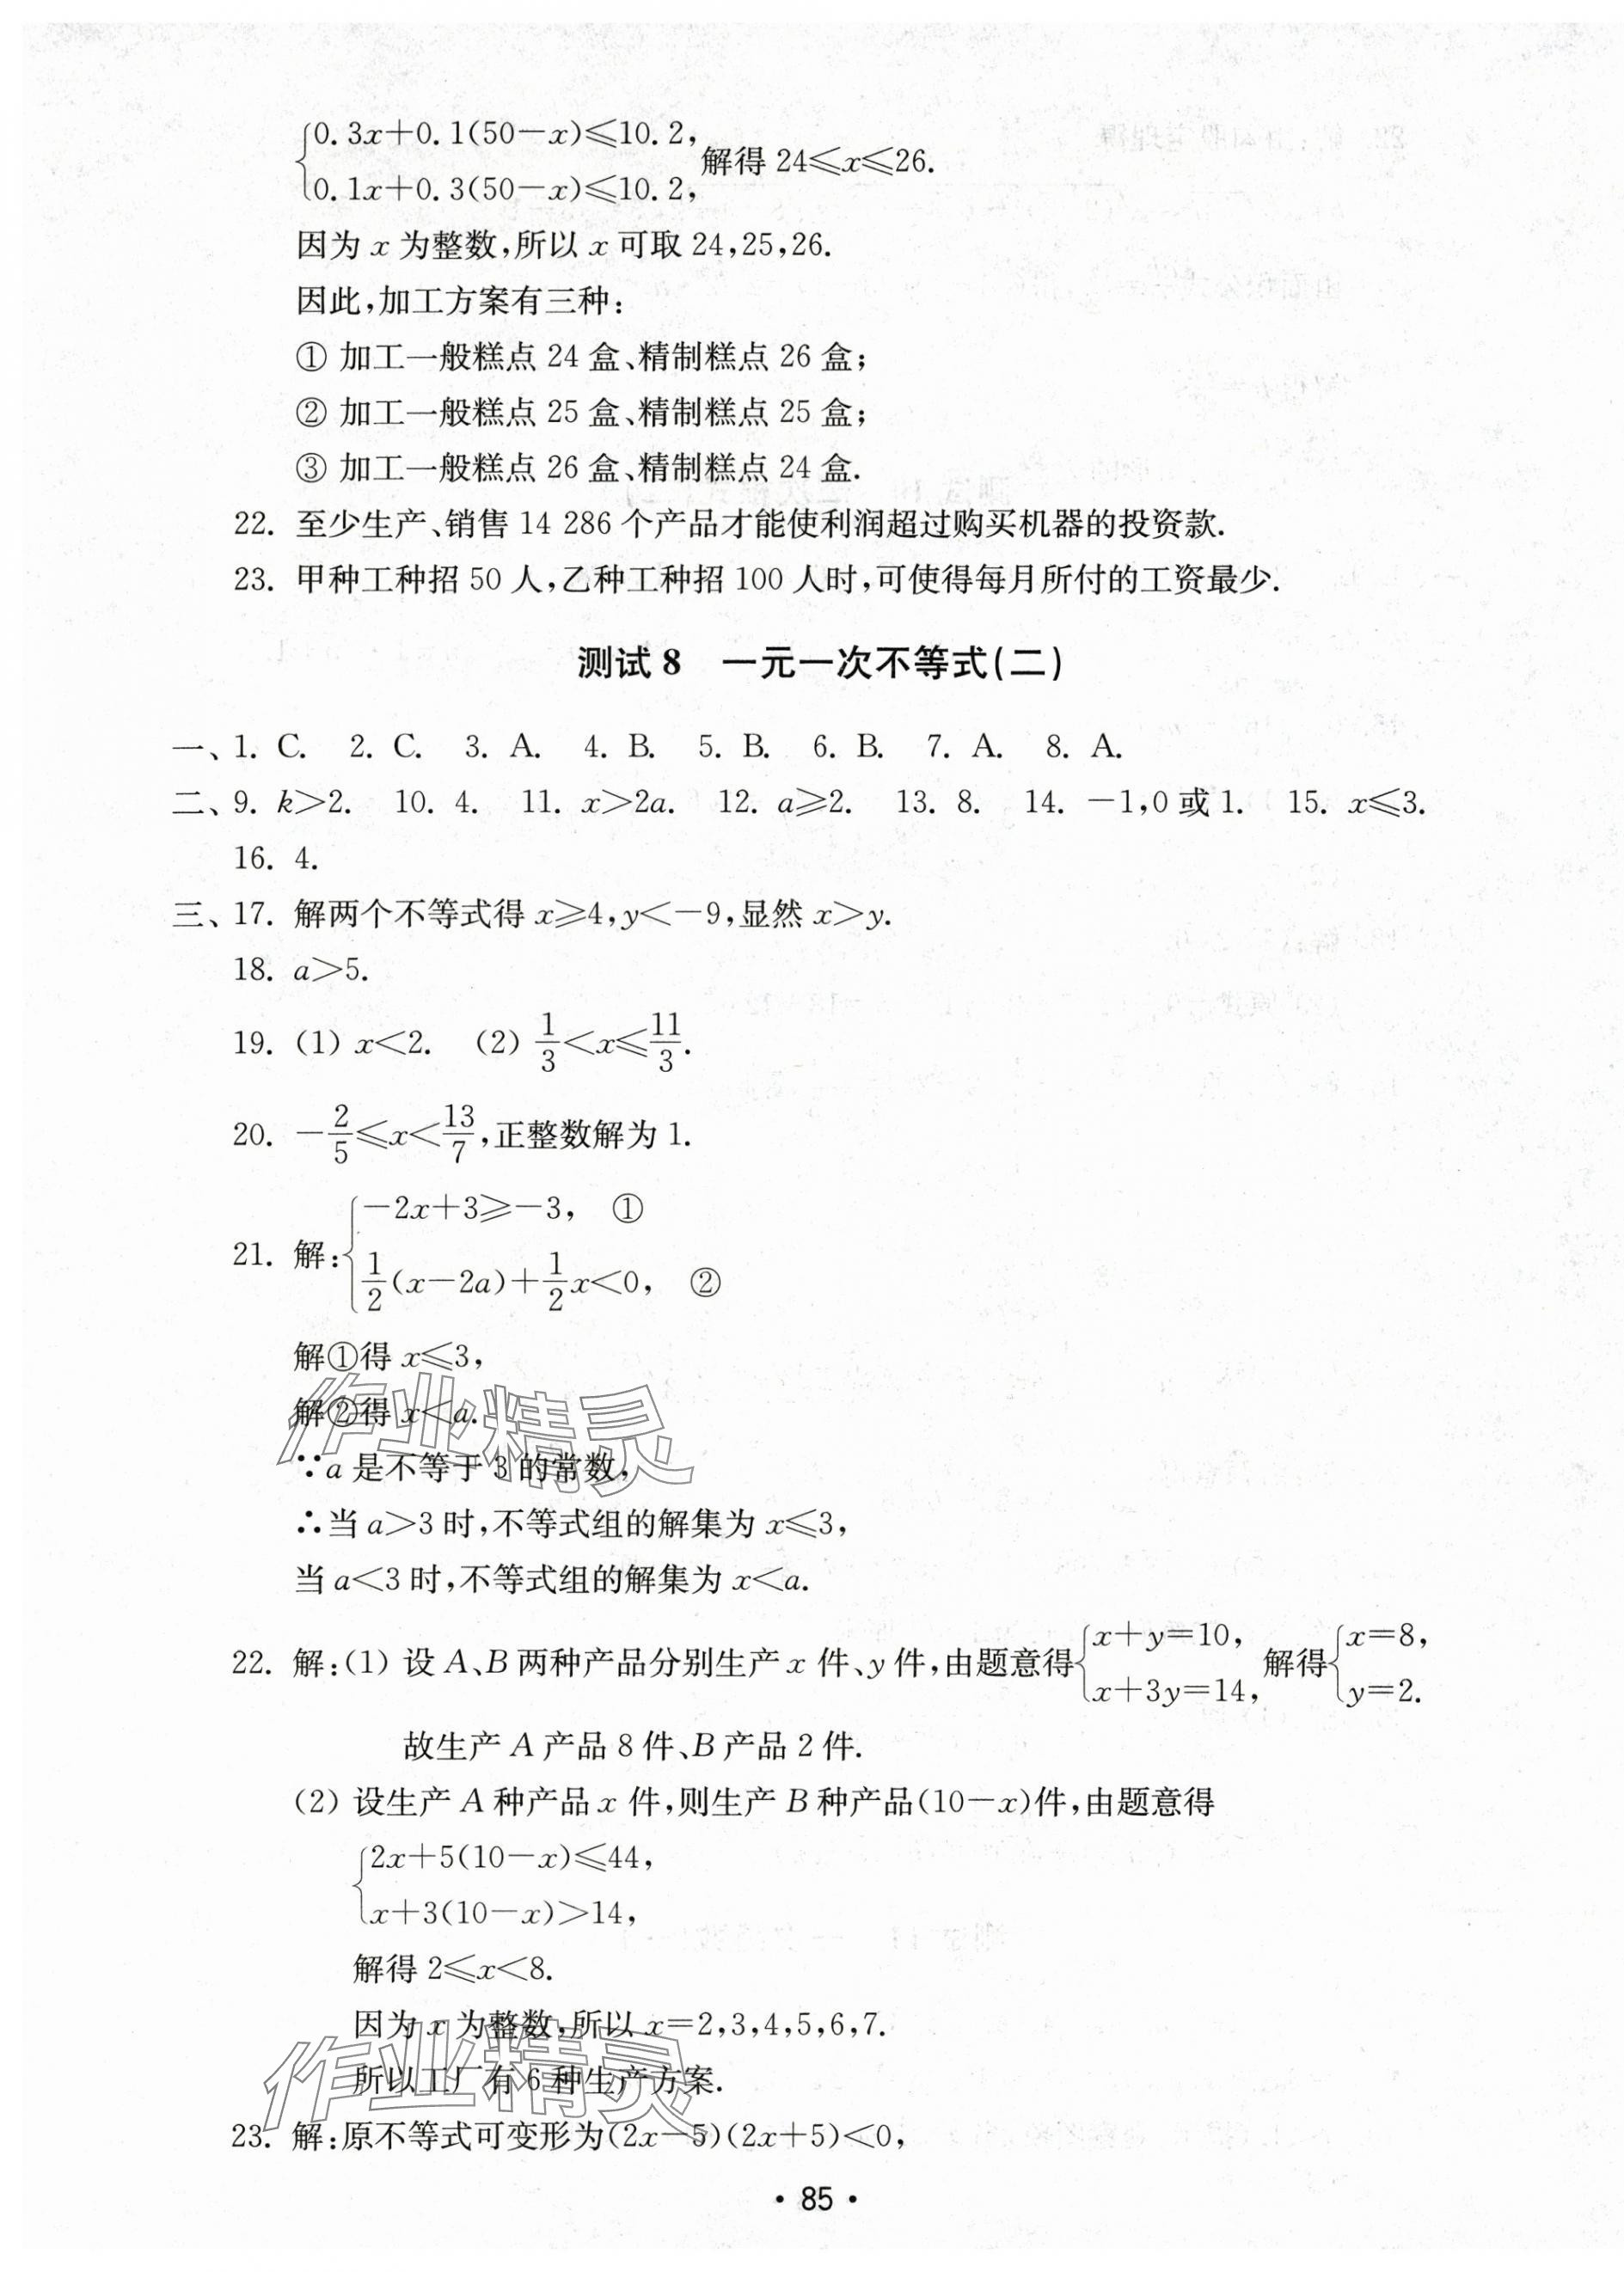 {0.3x+0.1(50-x)≤10.2,
0.1x+0.3(50-x)≤10.2, 解得 24≤x≤26.
因为 x 为整数,所以 x 可取 24,25,26.
因此,加工方案有三种:
① 加工一般糕点 24 盒、精制糕点 26 盒;
② 加工一般糕点 25 盒、精制糕点 25 盒;
③ 加工一般糕点 26 盒、精制糕点 24 盒.
22. 至少生产、销售 14 286 个产品才能使利润超过购买机器的投资款.
23. 甲种工种招 50 人,乙种工种招 100 人时,可使得每月所付的工资最少.
测试 8 一元一次不等式(二)
一、1. C. 2. C. 3. A. 4. B. 5. B. 6. B. 7. A. 8. A.
二、9. k>2. 10. 4. 11. x>2a. 12. a≥2. 13. 8. 14. -1,0 或 1. 15. x≤3.
16. 4.
三、17. 解两个不等式得 x≥4,y<-9,显然 x>y.
18. a>5.
19. (1) x<2. (2) 1/3<x≤11/3.
20. -2/5≤x<13/7,正整数解为 1.
21. 解:{-2x+3≥-3, ①
1/2(x-2a)+1/2x<0, ②
解①得 x≤3,
解②得 x<a.
∵a 是不等于 3 的常数,
∴当 a>3 时,不等式组的解集为 x≤3,
当 a<3 时,不等式组的解集为 x<a.
作业精灵
22. 解:(1) 设 A、B 两种产品分别生产 x 件、y 件,由题意得{x+y=10, x+3y=14, 解得{x=8, y=2.
故生产 A 产品 8 件、B 产品 2 件.
(2) 设生产 A 种产品 x 件,则生产 B 种产品(10-x)件,由题意得
{2x+5(10-x)≤44,
x+3(10-x)>14,
解得 2≤x<8.
因为 x 为整数,所以 x=2,3,4,5,6,7.
所以工厂有 6 种生产方案.
作业精灵
23. 解:原不等式可变形为(2x-5)(2x+5)<0,
• 85 •